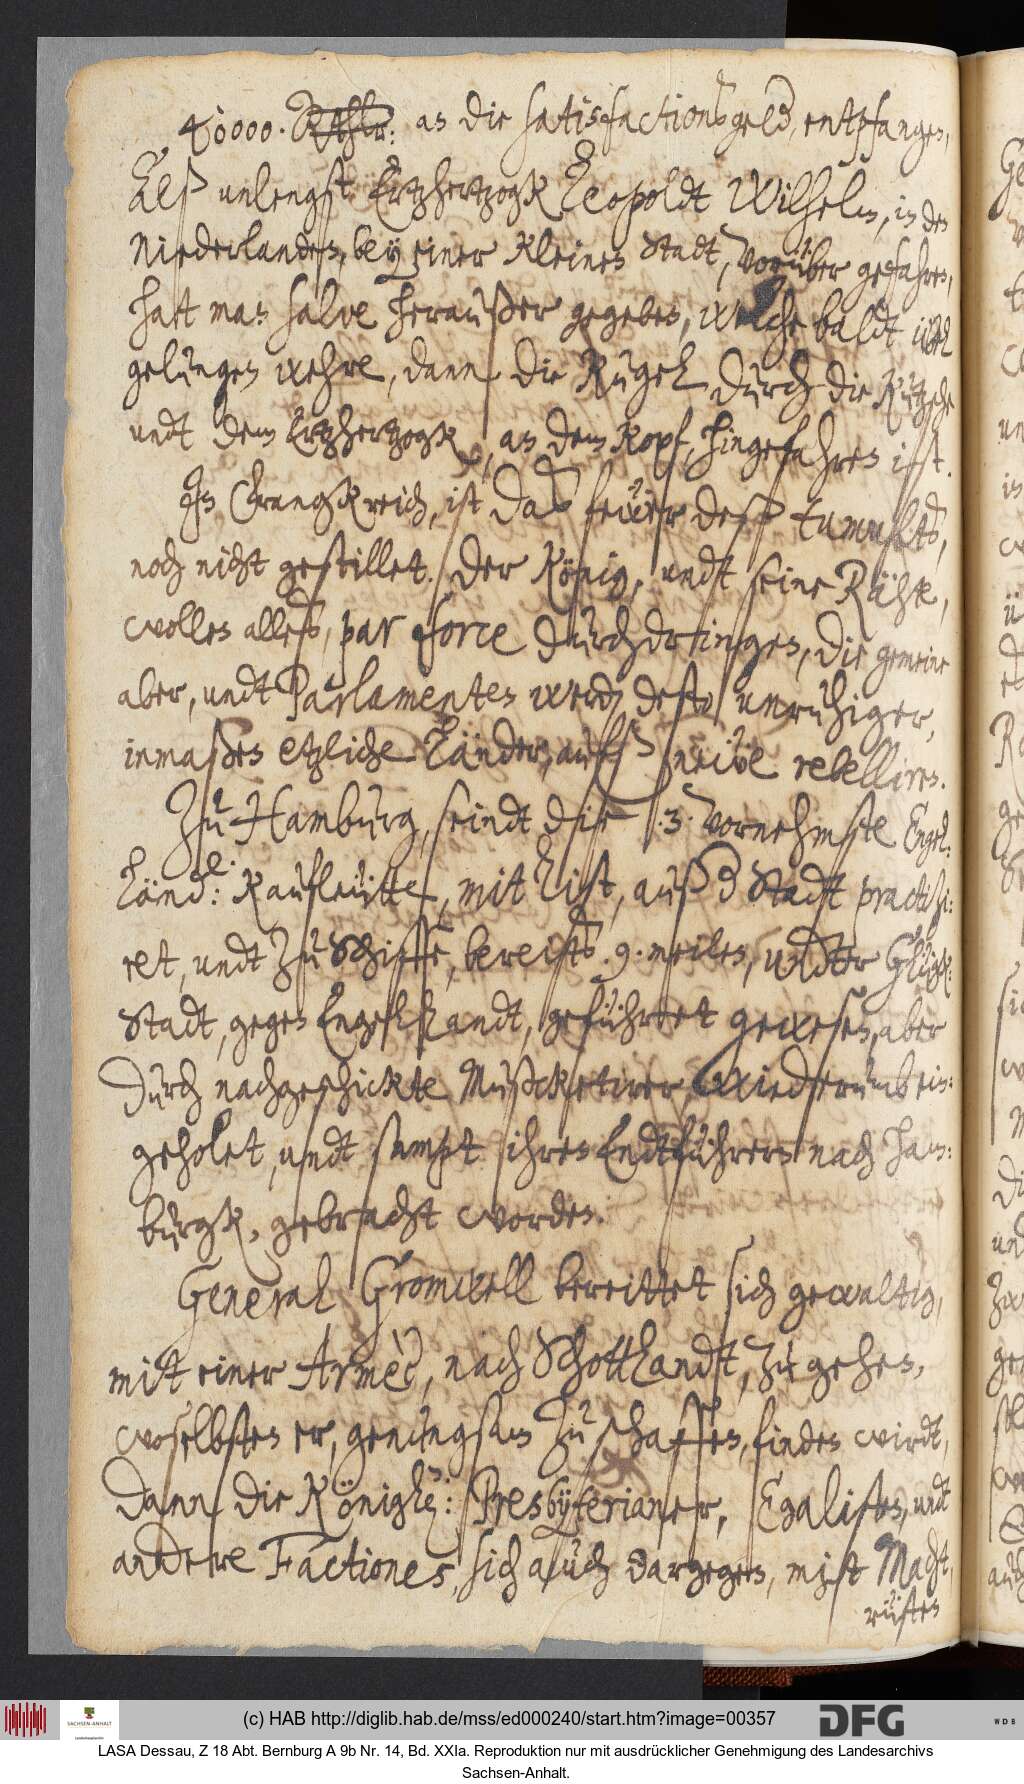 40000. Rthlr: an die satisfactionsgeld, entpfangen,
Alß unlengst Ertzhertzogk Leopoldt Wilhelm, in den
Niederlanden, bey einer kleinen Stadt, vorüber gefahren,
hatt man salve heraußer gegeben, welche baldt übel
gelungen wehre, dann die Kugel durch die Kutzsche
undt dem Ertzhertzogk, an dem Kopf, hingefahren ist.
In Franckreich, ist das feüer deß tumults,
noch nicht gestillet. Der König, undt seine Rähte,
wollen alleß, par force durchdringen, die gemeine
aber, undt Parlamenten werden desto unruhiger,
inmaßen etzliche Länder, aufß neüe rebelliren.
Zu Hamburg, seindt die .3. vornehmste Engel:
länd: Kaufleütte, mit list, auß der Stadt practisi:
ret, undt zu Schiffe, bereits .9. meilen, undter Glügk:
Stadt, gegen Engellandt, geführet gewesen, aber
durch nachgeschickte Mußcketirer, wiederumb ein:
geholet, undt sampt ihren Endtführern nach Ham:
burgk, gebracht worden.
General Cromwell bereittet sich gewaltig,
mitt einer Armèe, nach Schottlandt, zu gehen,
woselbsten er, genungsam zu schaffen, finden wirdt,
dann die Königl: Presbyterianer, Egalisten, undt
andere Factiones, sich auch dargegen, mitt Macht,
rüsten
(c) HAB http://diglib.hab.de/mss/ed000240/start.htm?image=00357
SACHSEN-ANHALT
Landeshauptarchiv
DFG
WDB
LASA Dessau, Z 18 Abt. Bernburg A 9b Nr. 14, Bd. XXIa. Reproduktion nur mit ausdrücklicher Genehmigung des Landesarchivs
Sachsen-Anhalt.